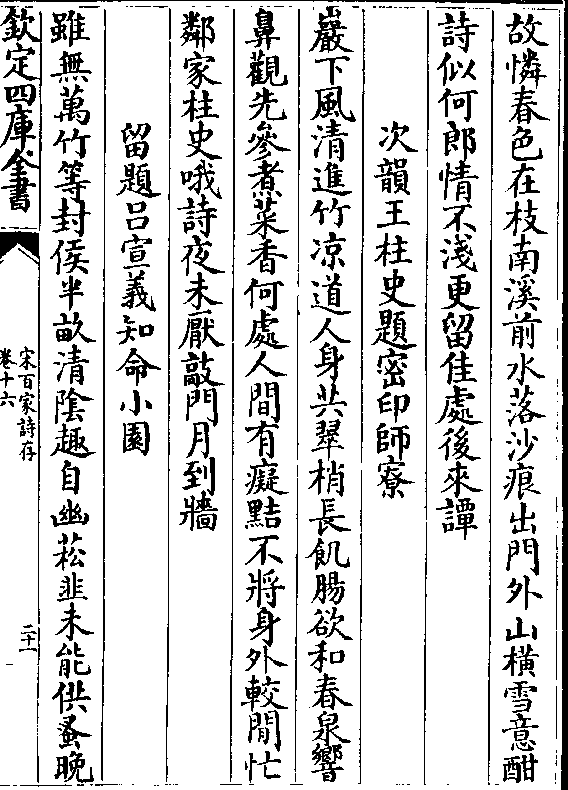 故憐春色在枝南溪前水落沙痕出門外山横雪意酣
詩似何郎情不淺更留佳處後來譚
次韻王柱史題密印師寮
巖下風清進竹凉道人身共翠梢長飢腸欲和春泉響
鼻觀先參煮菜香何處人間有癡黠不將身外較閒忙
鄰家柱史哦詩夜未厭敲門月到牆
留題吕宣義知命小園
雖無萬竹等封侯半畝清陰趣自幽菘韭未能供蚤晚
欽定四庫全書
宋百家詩存
卷十六
二十一